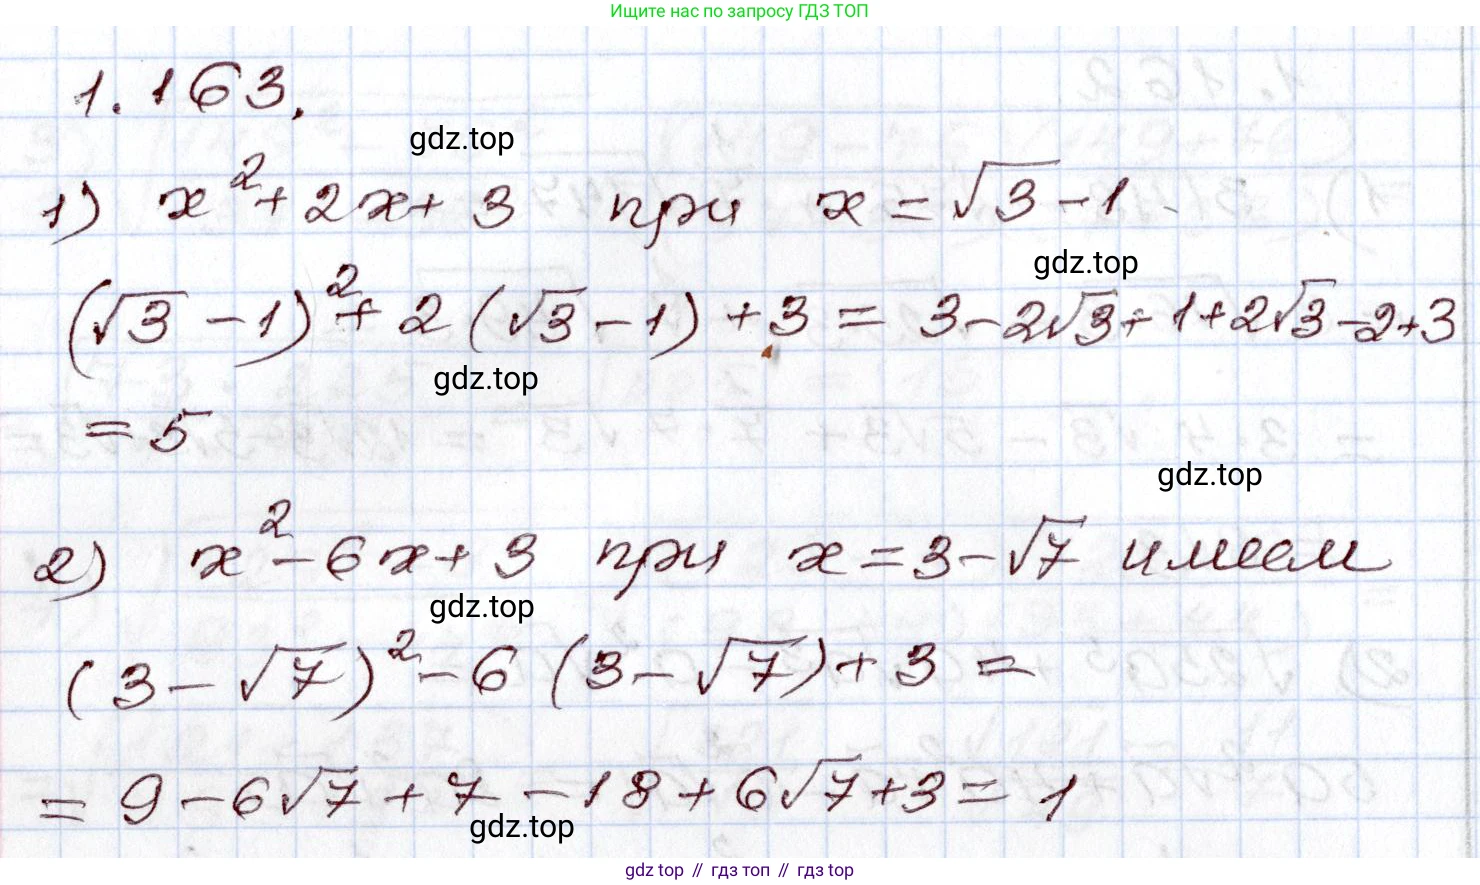 Ищите нас по запросу ГДЗ ТОП
1.163.
gdz.top
1) x² + 2x + 3 при x = √3 - 1
gdz.top
(√3 - 1)² + 2(√3 - 1) + 3 = 3 - 2√3 + 1 + 2√3 - 2 + 3
gdz.top
= 5
gdz.top
2) x² - 6x + 3 при x = 3 - √7 имеем
gdz.top
(3 - √7)² - 6(3 - √7) + 3 =
= 9 - 6√7 + 7 - 18 + 6√7 + 3 = 1
gdz.top
gdz top // гдз топ // gdz top